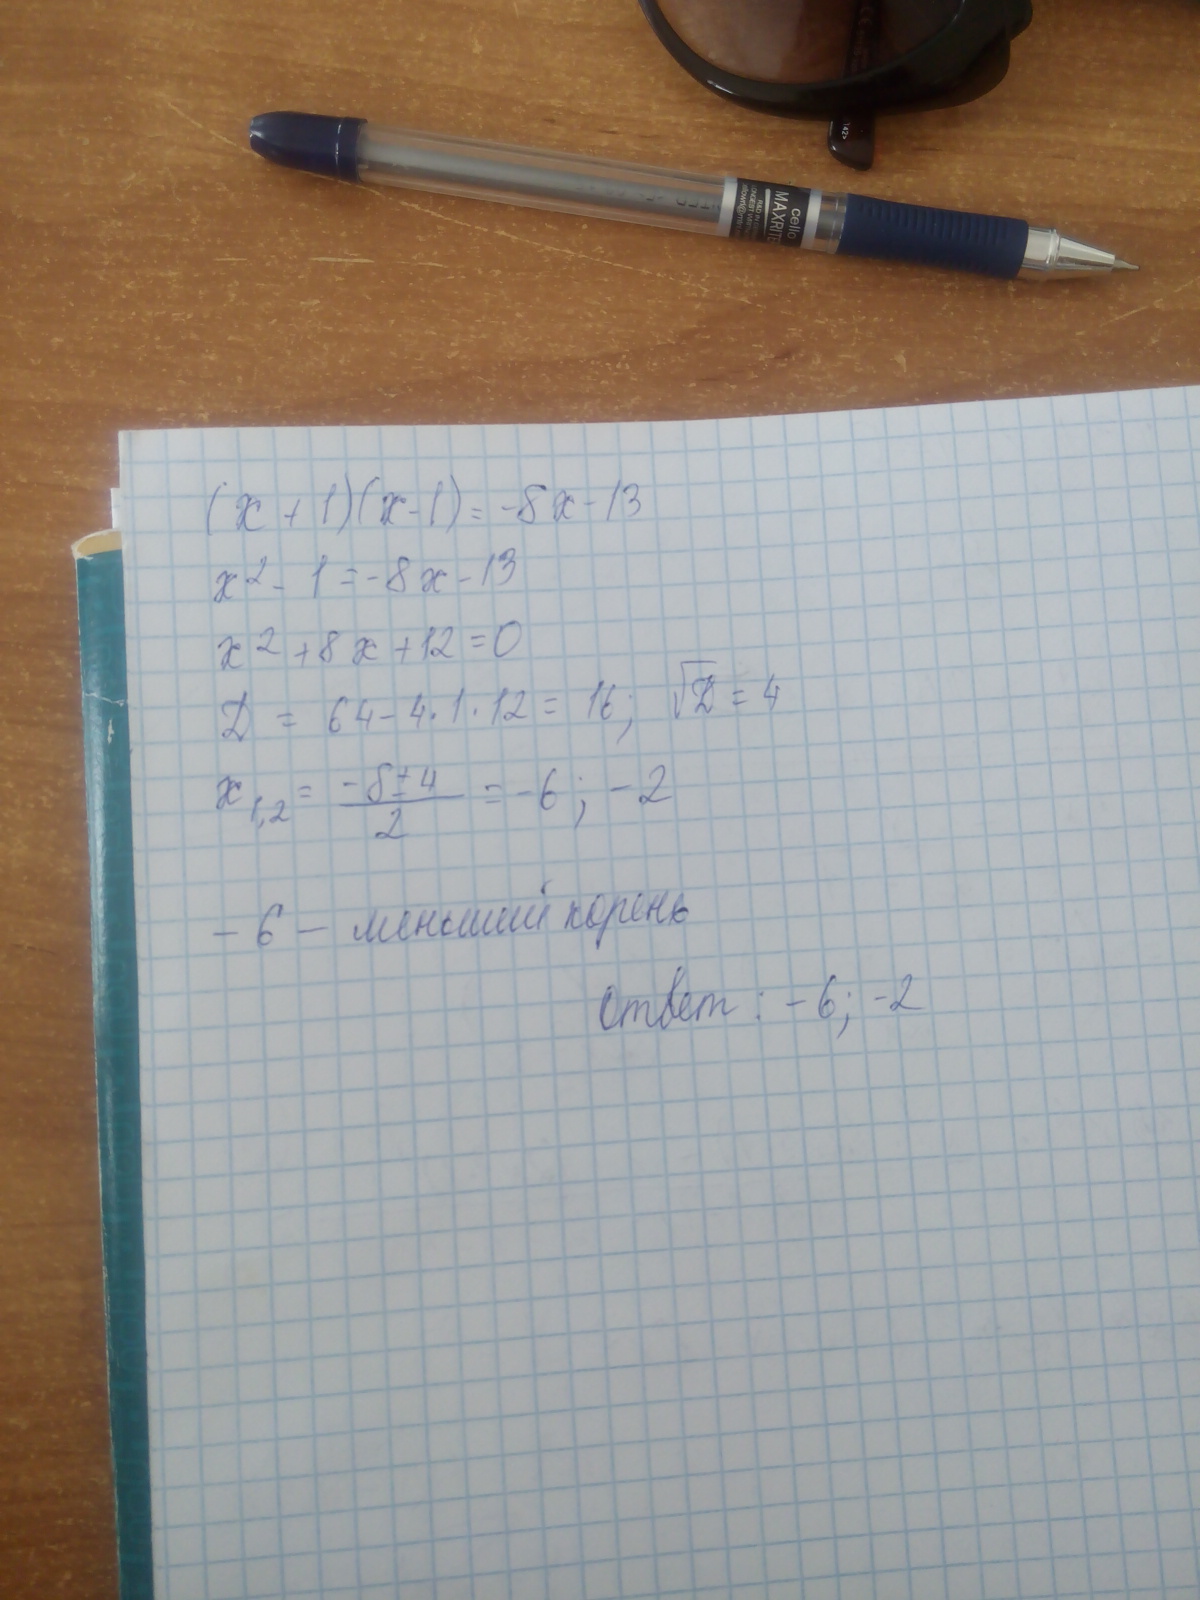 cello
MAXRITE
(x + 1)(x - 1) = -8x - 13
x² - 1 = -8x - 13
x² + 8x + 12 = 0
D = 64 - 4 · 1 · 12 = 16; √D = 4
x₁,₂ = (-8 ± 4) / 2 = -6; -2
- 6 - меньший корень
Ответ: -6; -2